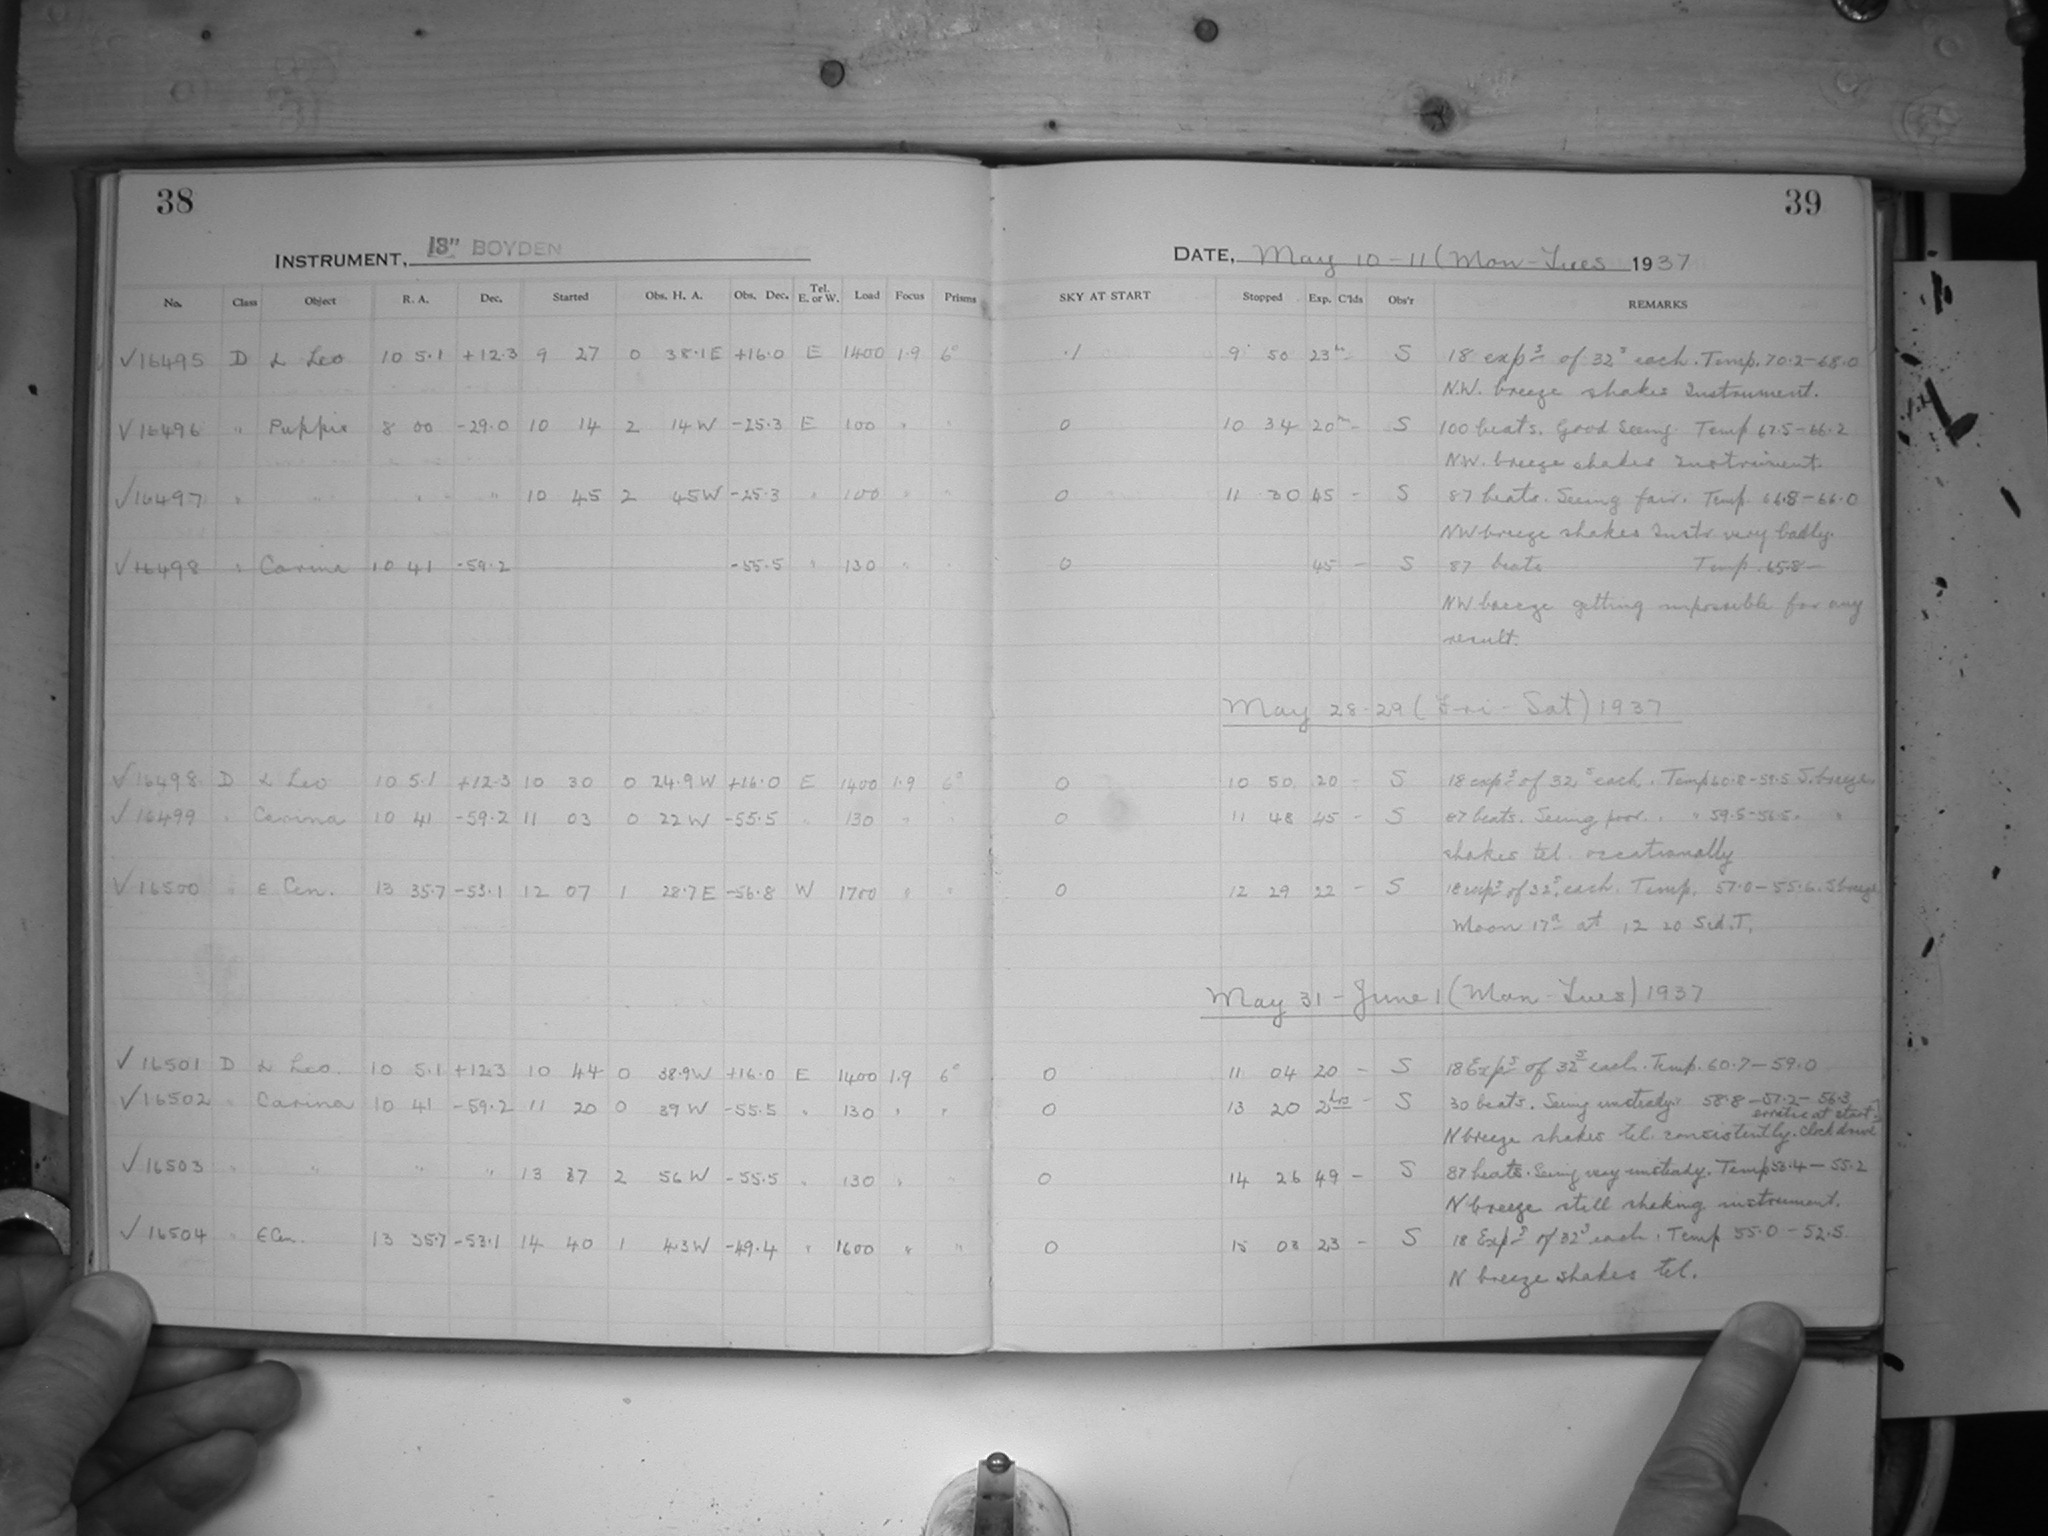 38
39
INSTRUMENT, 13" BOYDEN
DATE, May 10-11 (Mon-Tues 1937
No. Class Object R. A. Dec. Started Obs. H. A. Obs. Dec. Tel. E. or W. Load Focus Prisms SKY AT START Stopped Exp. C'lds Obs'r REMARKS
√16495 D α Leo 10 5.1 +12.3 9 27 0 38.1E +16.0 E 1400 1.9 6° .1 9 50 23m - S 18 exps of 32s each. Temp. 70.2-68.0
N.W. breeze shakes Instrument.
√16496 " Puppis 8 00 -29.0 10 14 2 14W -25.3 E 100 " " 0 10 34 20m - S 100 beats. Good Seeing. Temp 67.5-66.2
NW. breeze shakes Instrument.
√16497 " " " " 10 45 2 45W -25.3 " 100 " " 0 11 30 45 - S 87 beats. Seeing fair. Temp. 66.8-66.0
NW breeze shakes Instr very badly.
√16498 " Carina 10 41 -59.2 -55.5 " 130 " " 0 45 - S 87 beats Temp. 65.8-
NW breeze getting impossible for any
result.
May 28-29 (Fri-Sat) 1937
√16498 D α Leo 10 5.1 +12.3 10 30 0 24.9W +16.0 E 1400 1.9 6° 0 10 50 20 - S 18 exps of 32s each. Temp 60.8-59.5 S. breeze
√16499 " Carina 10 41 -59.2 11 03 0 22W -55.5 " 130 " " 0 11 48 45 - S 87 beats. Seeing poor. " 59.5-56.5. "
shakes tel. occationally
√16500 " ε Cen. 13 35.7 -53.1 12 07 1 28.7E -56.8 W 1700 " " 0 12 29 22 - S 18 exps of 32s each. Temp. 57.0-55.6. S breeze
Moon at 12 20 Sid. T.
May 31-June 1 (Mon-Tues) 1937
√16501 D α Leo. 10 5.1 +12.3 10 44 0 38.9W +16.0 E 1400 1.9 6° 0 11 04 20 - S 18 Exps of 32s each. Temp. 60.7-59.0
√16502 " Carina 10 41 -59.2 11 20 0 39W -55.5 " 130 " " 0 13 20 2hrs - S 30 beats. Seeing unsteady. 58.8-57.2-56.3
erratic at start.
N breeze shakes tel. consistently. Clock drive
√16503 " " " " 13 37 2 56W -55.5 " 130 " " 0 14 26 49 - S 87 beats. Seeing very unsteady. Temp 56.4-55.2
N breeze still shaking instrument.
√16504 " ε Cen. 13 35.7 -53.1 14 40 1 43W -49.4 " 1600 " " 0 15 03 23 - S 18 Exps of 32s each. Temp 55.0-52.5
N breeze shakes tel.